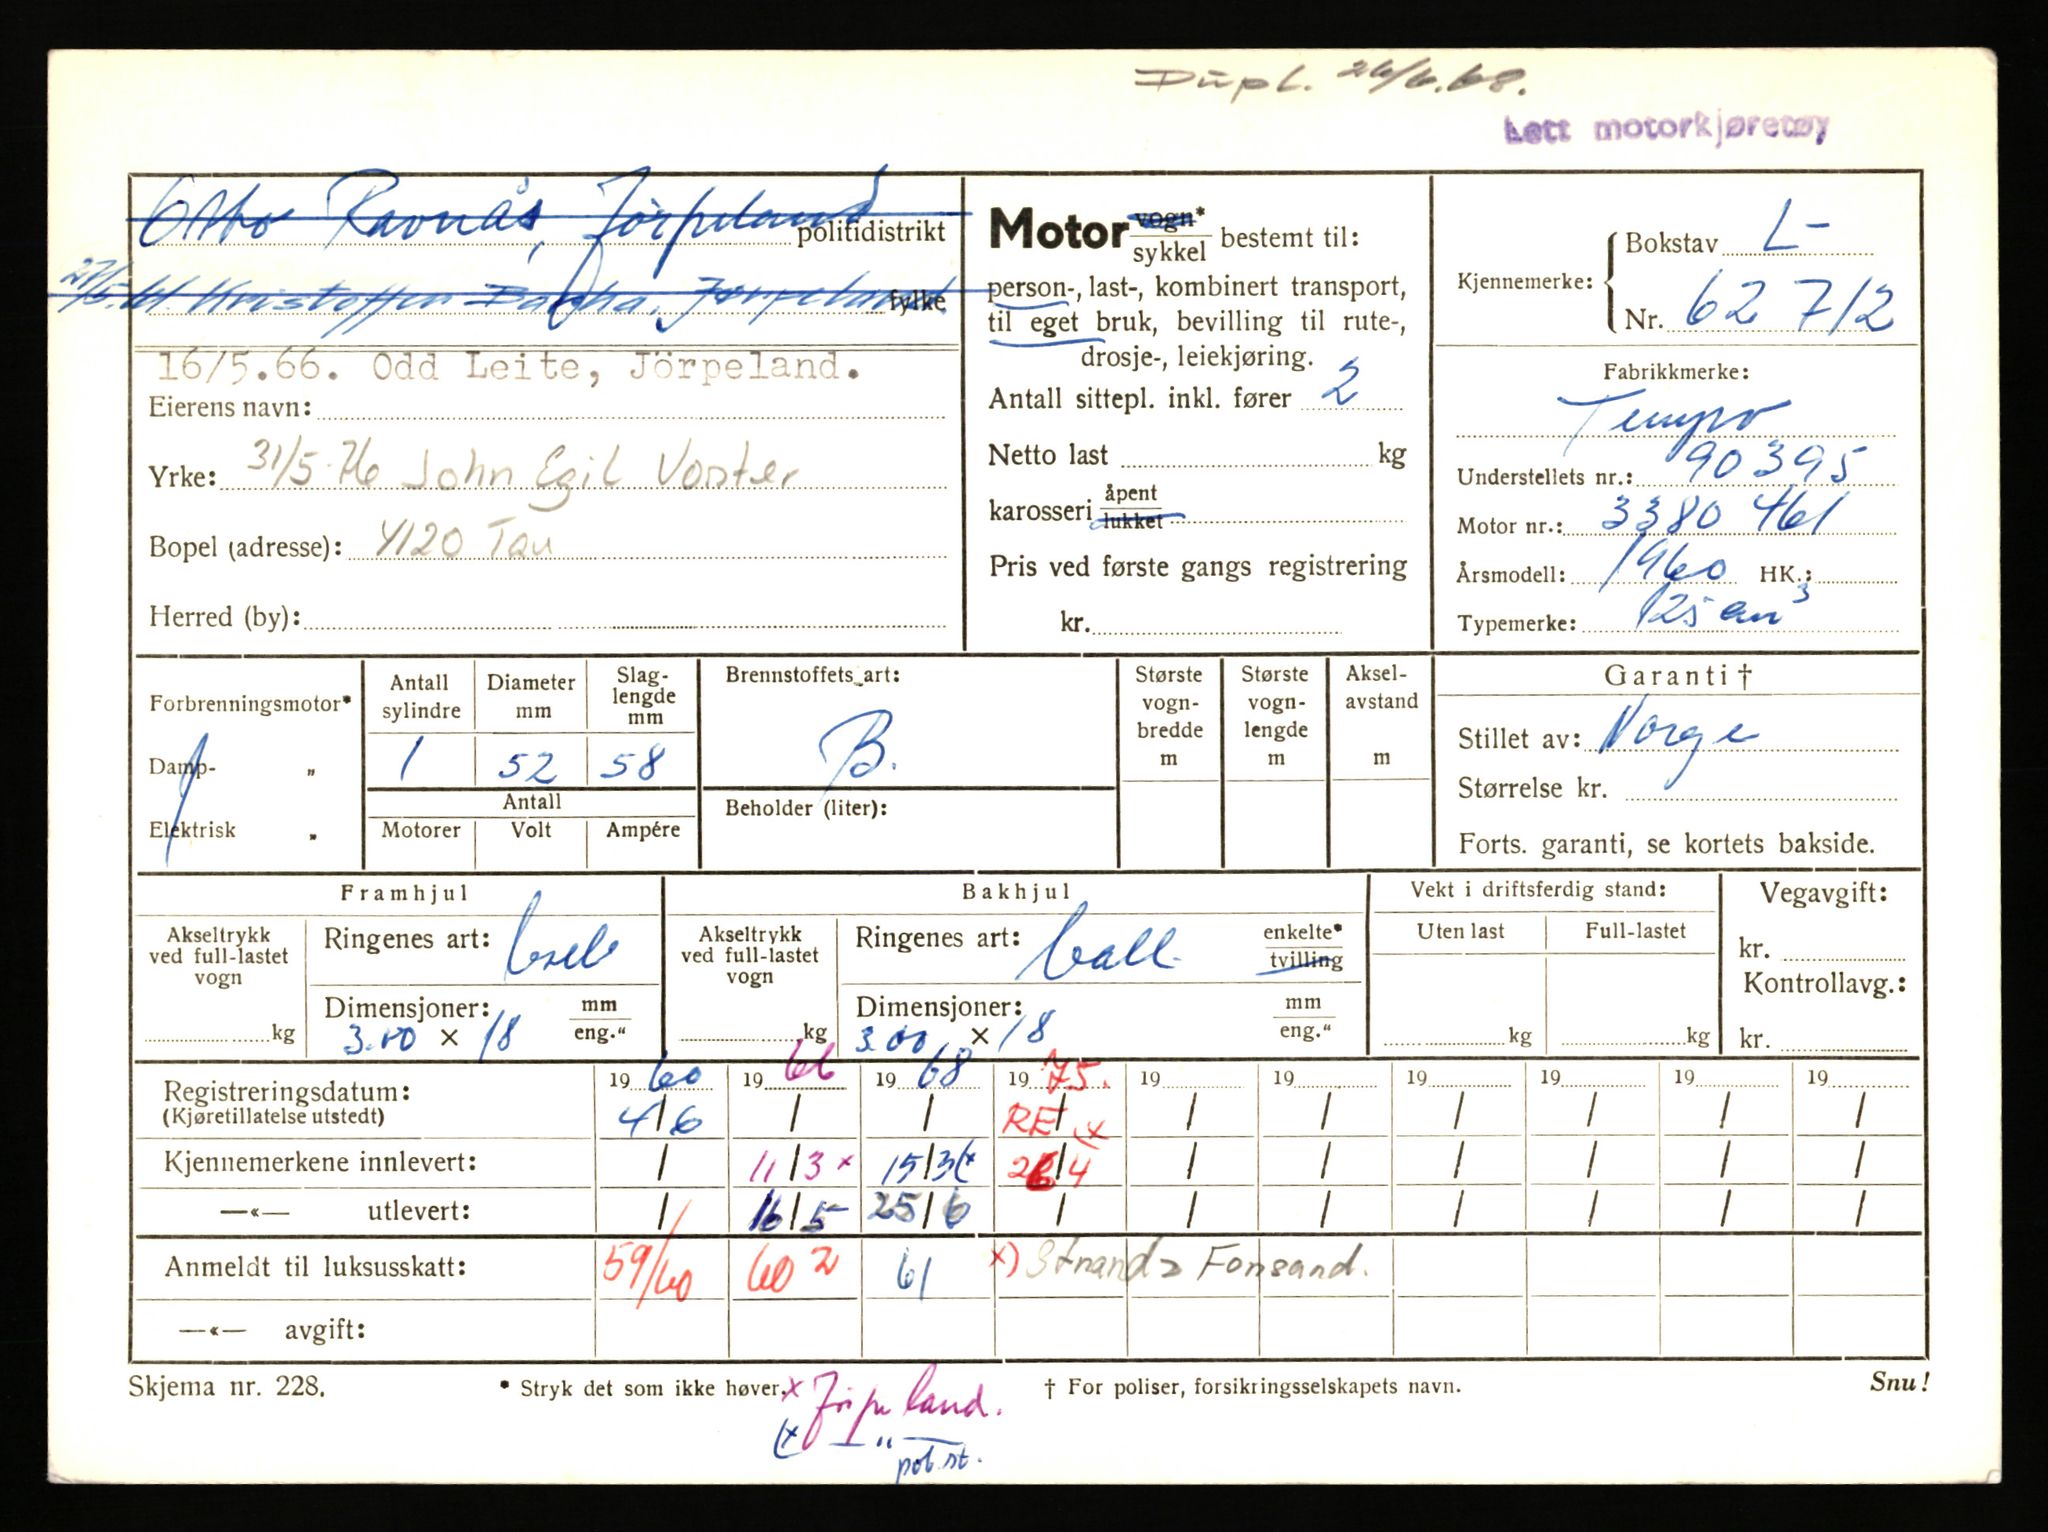 Dupl. 26/6.68.
Lett motorkjøretøy
Otto Ravnås, Jörpeland politidistrikt
27/5.61 Kristoffer Jørpeland fylke
16/5.66. Odd Leite, Jörpeland.
Eierens navn:
Yrke: 31/5-76 John Egil Voster
Bopel (adresse): 4120 Tau
Herred (by):
Motor vogn* sykkel bestemt til:
person-, last-, kombinert transport,
til eget bruk, bevilling til rute-,
drosje-, leiekjøring.
Antall sittepl. inkl. fører 2
Netto last kg
karosseri åpent lukket
Pris ved første gangs registrering
kr.
Kjennemerke: Bokstav L-
Nr. 62 712
Fabrikkmerke:
Tempo
Understellets nr.: 90395
Motor nr.: 3380 461
Årsmodell: 1960 HK.:
Typemerke: 125 cm³
Forbrenningsmotor*
Damp- „
Elektrisk „
Antall sylindre
1
Diameter mm
52
Slag-lengde mm
58
Antall
Motorer Volt Ampére
Brennstoffets art:
B.
Beholder (liter):
Største vogn-bredde m
Største vogn-lengde m
Aksel-avstand m
Garanti †
Stillet av: Norge
Størrelse kr.
Forts. garanti, se kortets bakside.
Framhjul
Akseltrykk ved full-lastet vogn
kg
Ringenes art:
Dimensjoner: mm eng."
3.00 × 18
Bakhjul
Akseltrykk ved full-lastet vogn
kg
Ringenes art: ball. enkelte* tvilling
Dimensjoner: mm eng."
3.00 × 18
Vekt i driftsferdig stand:
Uten last Full-lastet
kg kg
Vegavgift:
kr.
Kontrollavg.:
kr.
Registreringsdatum: 19 60 19 66 19 68 19 75. 19 19 19 19 19 19
(Kjøretillatelse utstedt) 4/6 / / RE / x / / / / / /
Kjennemerkene innlevert: / 11/3 x 15/3 (x 26/4 / / / / / /
—«— utlevert: / 16/5 25/6 / / / / / / /
Anmeldt til luksusskatt: 59/60 60 2 61 x) Strand, Forsand.
—«— avgift:
Skjema nr. 228. * Stryk det som ikke høver. † For poliser, forsikringsselskapets navn. Snu!
x Jörpeland.
(x —"—
pol.st.